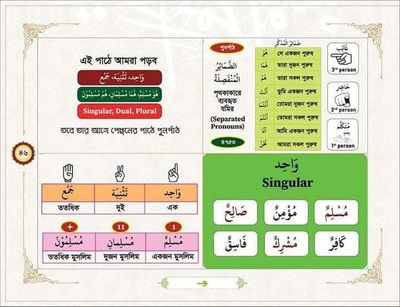 এই পাঠে আমরা পড়ব
وَاحِد، تَثْنِيَة، جَمْع
هُوَ مُسْلِمٌ، هُمَا مُسْلِمَانِ، هُمْ مُسْلِمُوْنَ
Singular, Dual, Plural
তবে তার আগে পেছনের পাঠে পুনর্পাঠ
পুনর্পাঠ
اَلضَّمَائِرُ
الْمُنْفَصِلَةُ
পৃথকাকারে
ব্যবহৃত
যমির
(Separated
Pronouns)
ضَمَائِرُ الْمُذَكَّرِ
هُوَ সে একজন পুরুষ
هُمَا তারা দুজন পুরুষ
هُمْ তারা সকল পুরুষ
أَنْتَ তুমি একজন পুরুষ
তোমরা দুজন পুরুষ
তোমরা সকল পুরুষ
أَنَا আমি একজন পুরুষ
نَحْنُ আমরা সকল পুরুষ
غَائِب
3rd person
حَاضِر
2nd person
مُتَكَلِّم
1st person
৪৬
جَمْعٌ تَثْنِيَة وَاحِد
ততধিক দুই এক
+ 11 1
مُسْلِمُوْنَ مُسْلِمَانِ مُسْلِمٌ
ততধিক মুসলিম দুজন মুসলিম একজন মুসলিম
وَاحِد
Singular
صَالِحٌ مُؤْمِنٌ مُسْلِمٌ
فَاسِقٌ مُشْرِكٌ كَافِرٌ